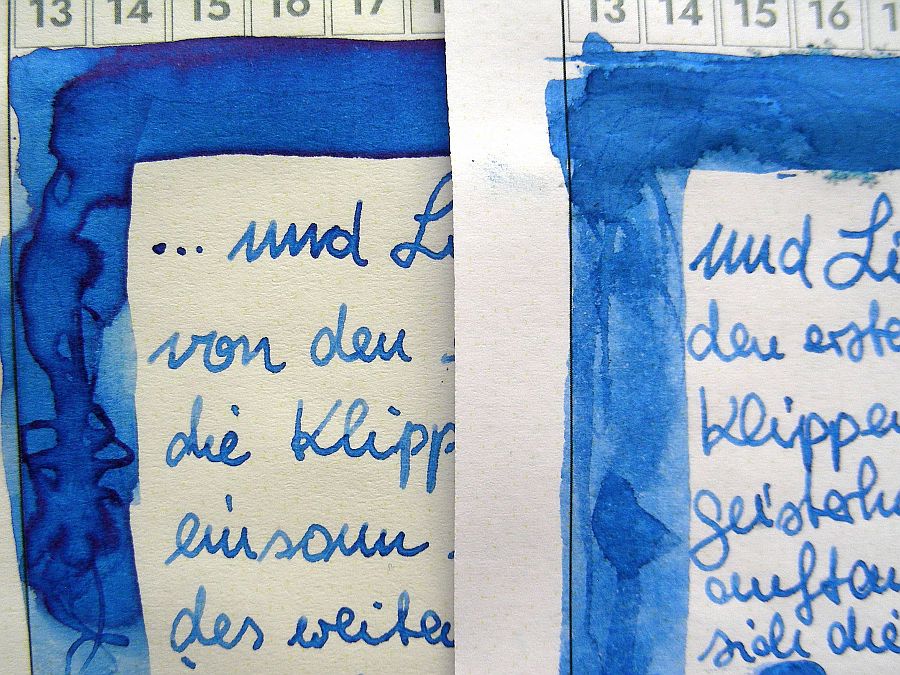 13 14 15 16 17
... und
von den
die Klipp
einsam
des weite
13 14 15 16
und Li
den erste
Klippe
geisterh
auftau
sich die